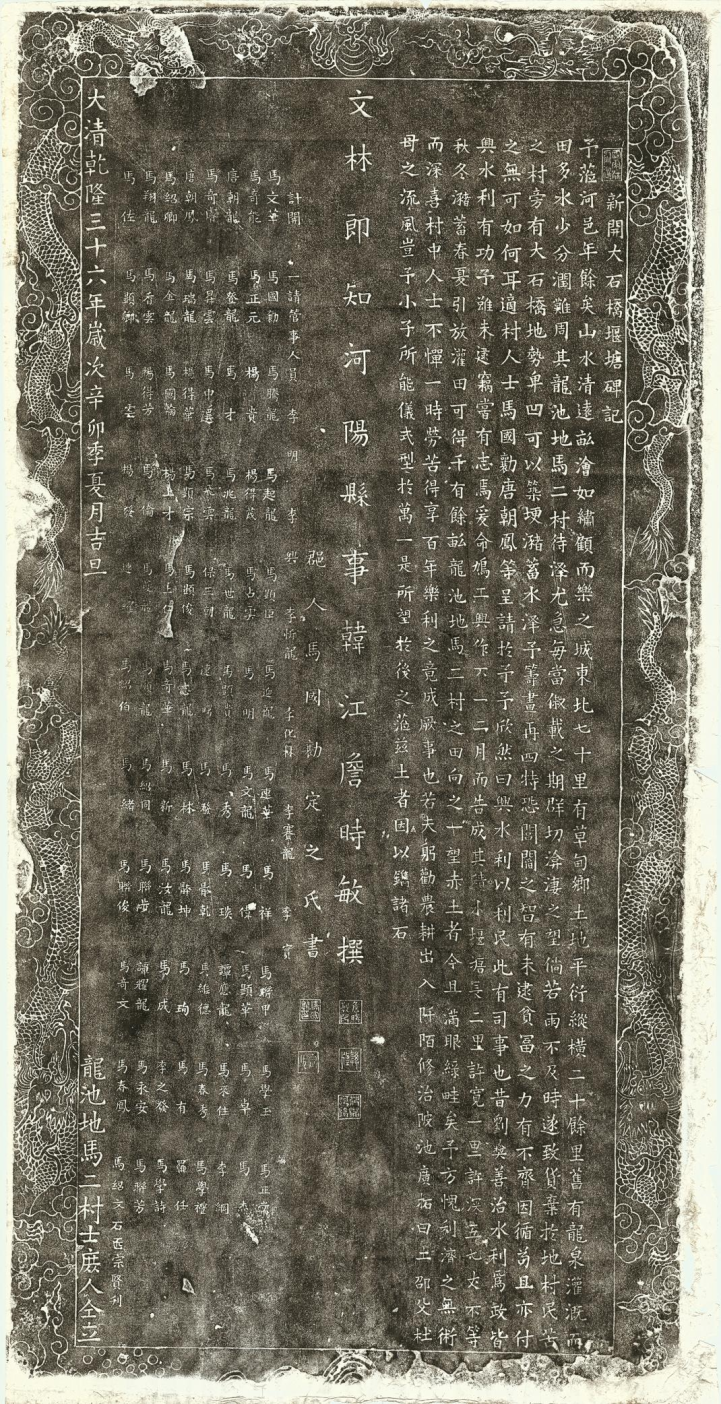 新開大石橋堰塘碑記
予蒞河邑年餘矣山水清遠畝澮如繡顧而樂之城東北七十里有草甸鄉土地平衍縱橫二十餘里舊有龍泉灌溉而
田多水少分潤難周其龍池地馬二村待澤尤急每當俶載之期群切渰淒之望倘若雨不及時遂致貨棄於地村民苦
之村旁有大石橋地勢卑凹可以築埂瀦蓄水澤予籌畫再四特恐閭閻之智有未逮貧富之力有不齊因循苟且亦付
之無可如何耳適村人士馬國勳唐朝鳳等呈請於予予欣然曰興水利以利民此有司事也昔劉彝善治水利為政皆
興水利有功予雖未逮竊嘗有志焉爰命鳩工興作不一二月而告成其大小堰塘長二里許寬一里許深五七丈不等
秋冬瀦蓄春夏引放灌田可得千有餘畝龍池地馬二村之田向之一望赤土者今且滿眼綠畦矣予方愧利濟之無術
而深喜村中人士不憚一時勞苦得享百年樂利之竟成厥事也若夫躬勸農耕出入阡陌修治陂池廣拓田土邵父杜
母之流風豈予小子所能儀式型於萬一是所望於後之蒞茲土者因以鐫諸石
文林郎知河陽縣事韓江詹時敏撰
郡人馬國勛定之氏書
計開 一請管事人員 李明 李興 李新龍 李化林 李賽龍 李賓
馬文華 馬國勛 馬騰龍 馬起龍 馬連華 馬祥 馬聯甲 馬學玉
馬奇能 馬正元 楊貴 楊得茂 馬占雲 馬明 馬文龍 馬偉 馬顯華 馬卓
唐朝龍 馬登龍 馬才 馬兆龍 馬世龍 馬秀 馬瑛 譚應龍 馬永佳 李潤
馬昇雲 馬中選 馬維德 馬春秀 馬學禮
唐朝鳳 馬瑞龍 楊得華 馬顯宗 馬顯俊 馬林 馬齡坤 馬珣 馬有
馬紹卿 馬金龍 馬國翰 楊上才 馬新 馬汝龍 馬成 李之發 馬學詩
馬翔龍 馬看雲 楊得芳 馬倫 馬聯步 譚耀龍 馬永安 馬聯芳
馬佐 馬顯卿 馬緒 馬聯俊 馬奇文 馬春鳳 馬紹文
石匠宗賢刊
大清乾隆三十六年歲次辛卯季夏月吉旦
龍池地馬二村士庶人仝立